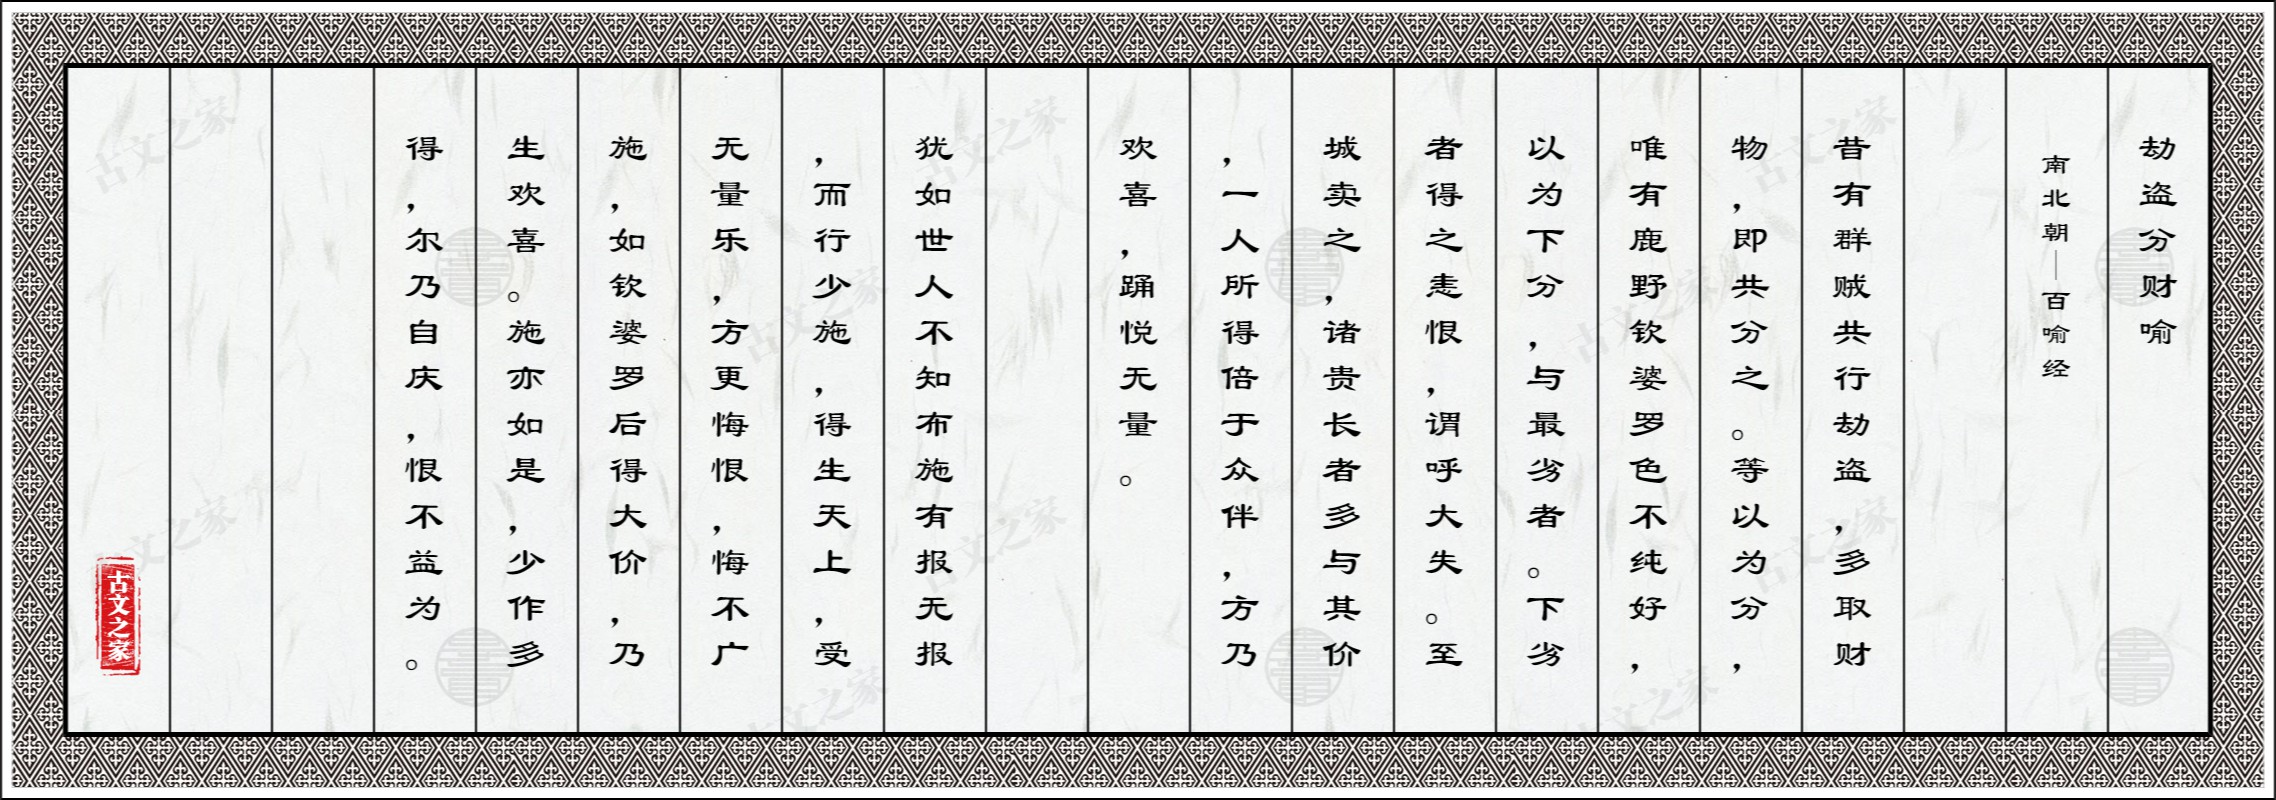 劫盗分财喻
南北朝—百喻经
昔有群贼共行劫盗，多取财
物，即共分之。等以为分，
唯有鹿野钦婆罗色不纯好，
以为下分，与最劣者。下劣
者得之恚恨，谓呼大失。至
城卖之，诸贵长者多与其价
，一人所得倍于众伴，方乃
欢喜，踊悦无量。
犹如世人不知布施有报无报
，而行少施，得生天上，受
无量乐，方更悔恨，悔不广
施，如钦婆罗后得大价，乃
生欢喜。施亦如是，少作多
得，尔乃自庆，恨不益为。
古文之家